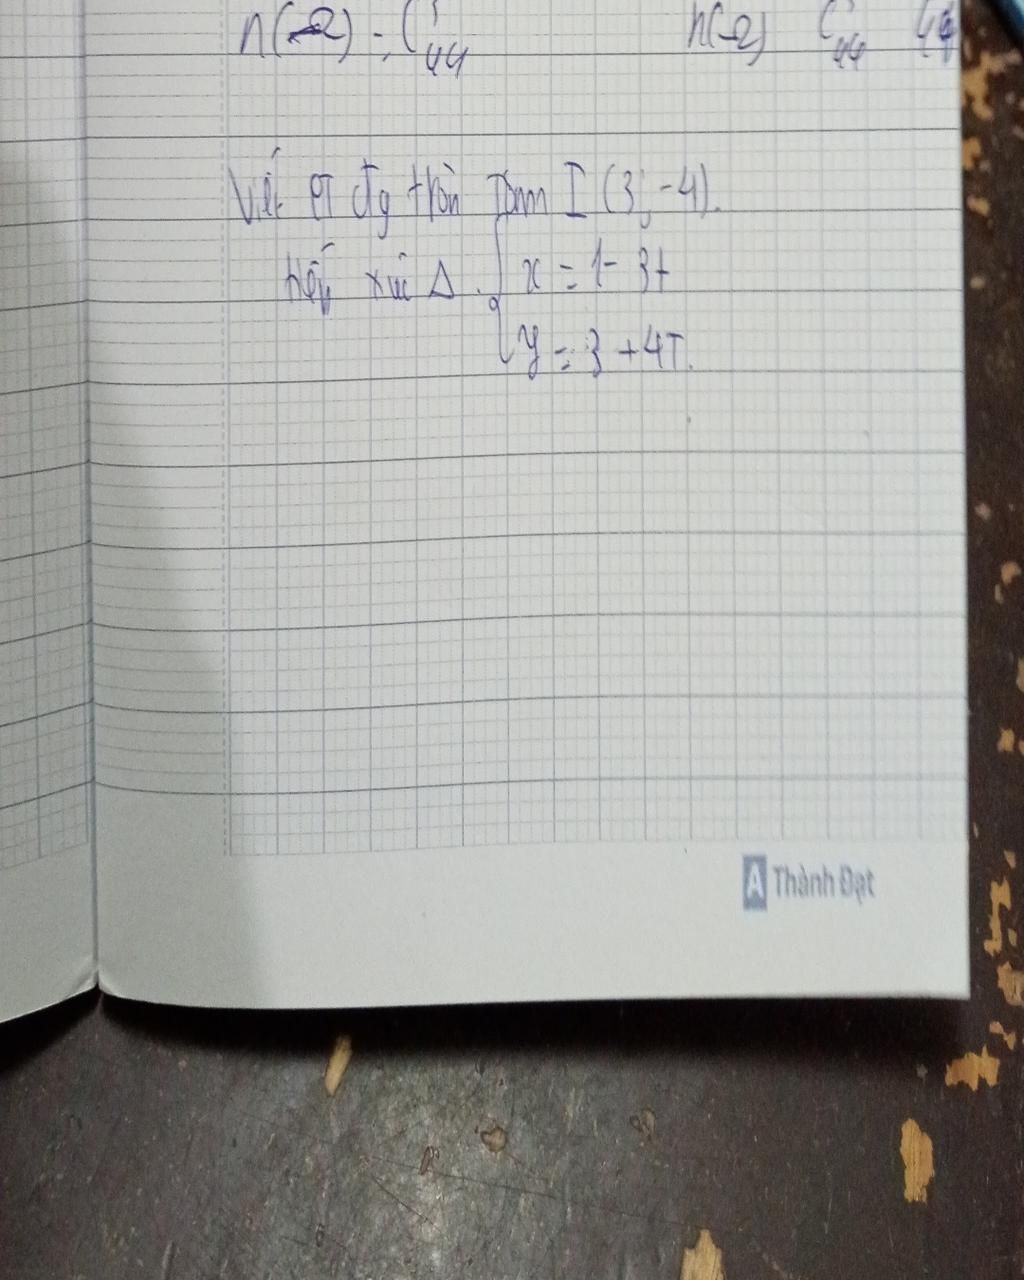 n(Ω) = C¹₄₄ n(Ω) C¹₄₄
Viết PT đg tròn Tâm I (3; -4).
tiếp xúc Δ. { x = 1 - 3t
y = 3 + 4T.
A Thành Đạt